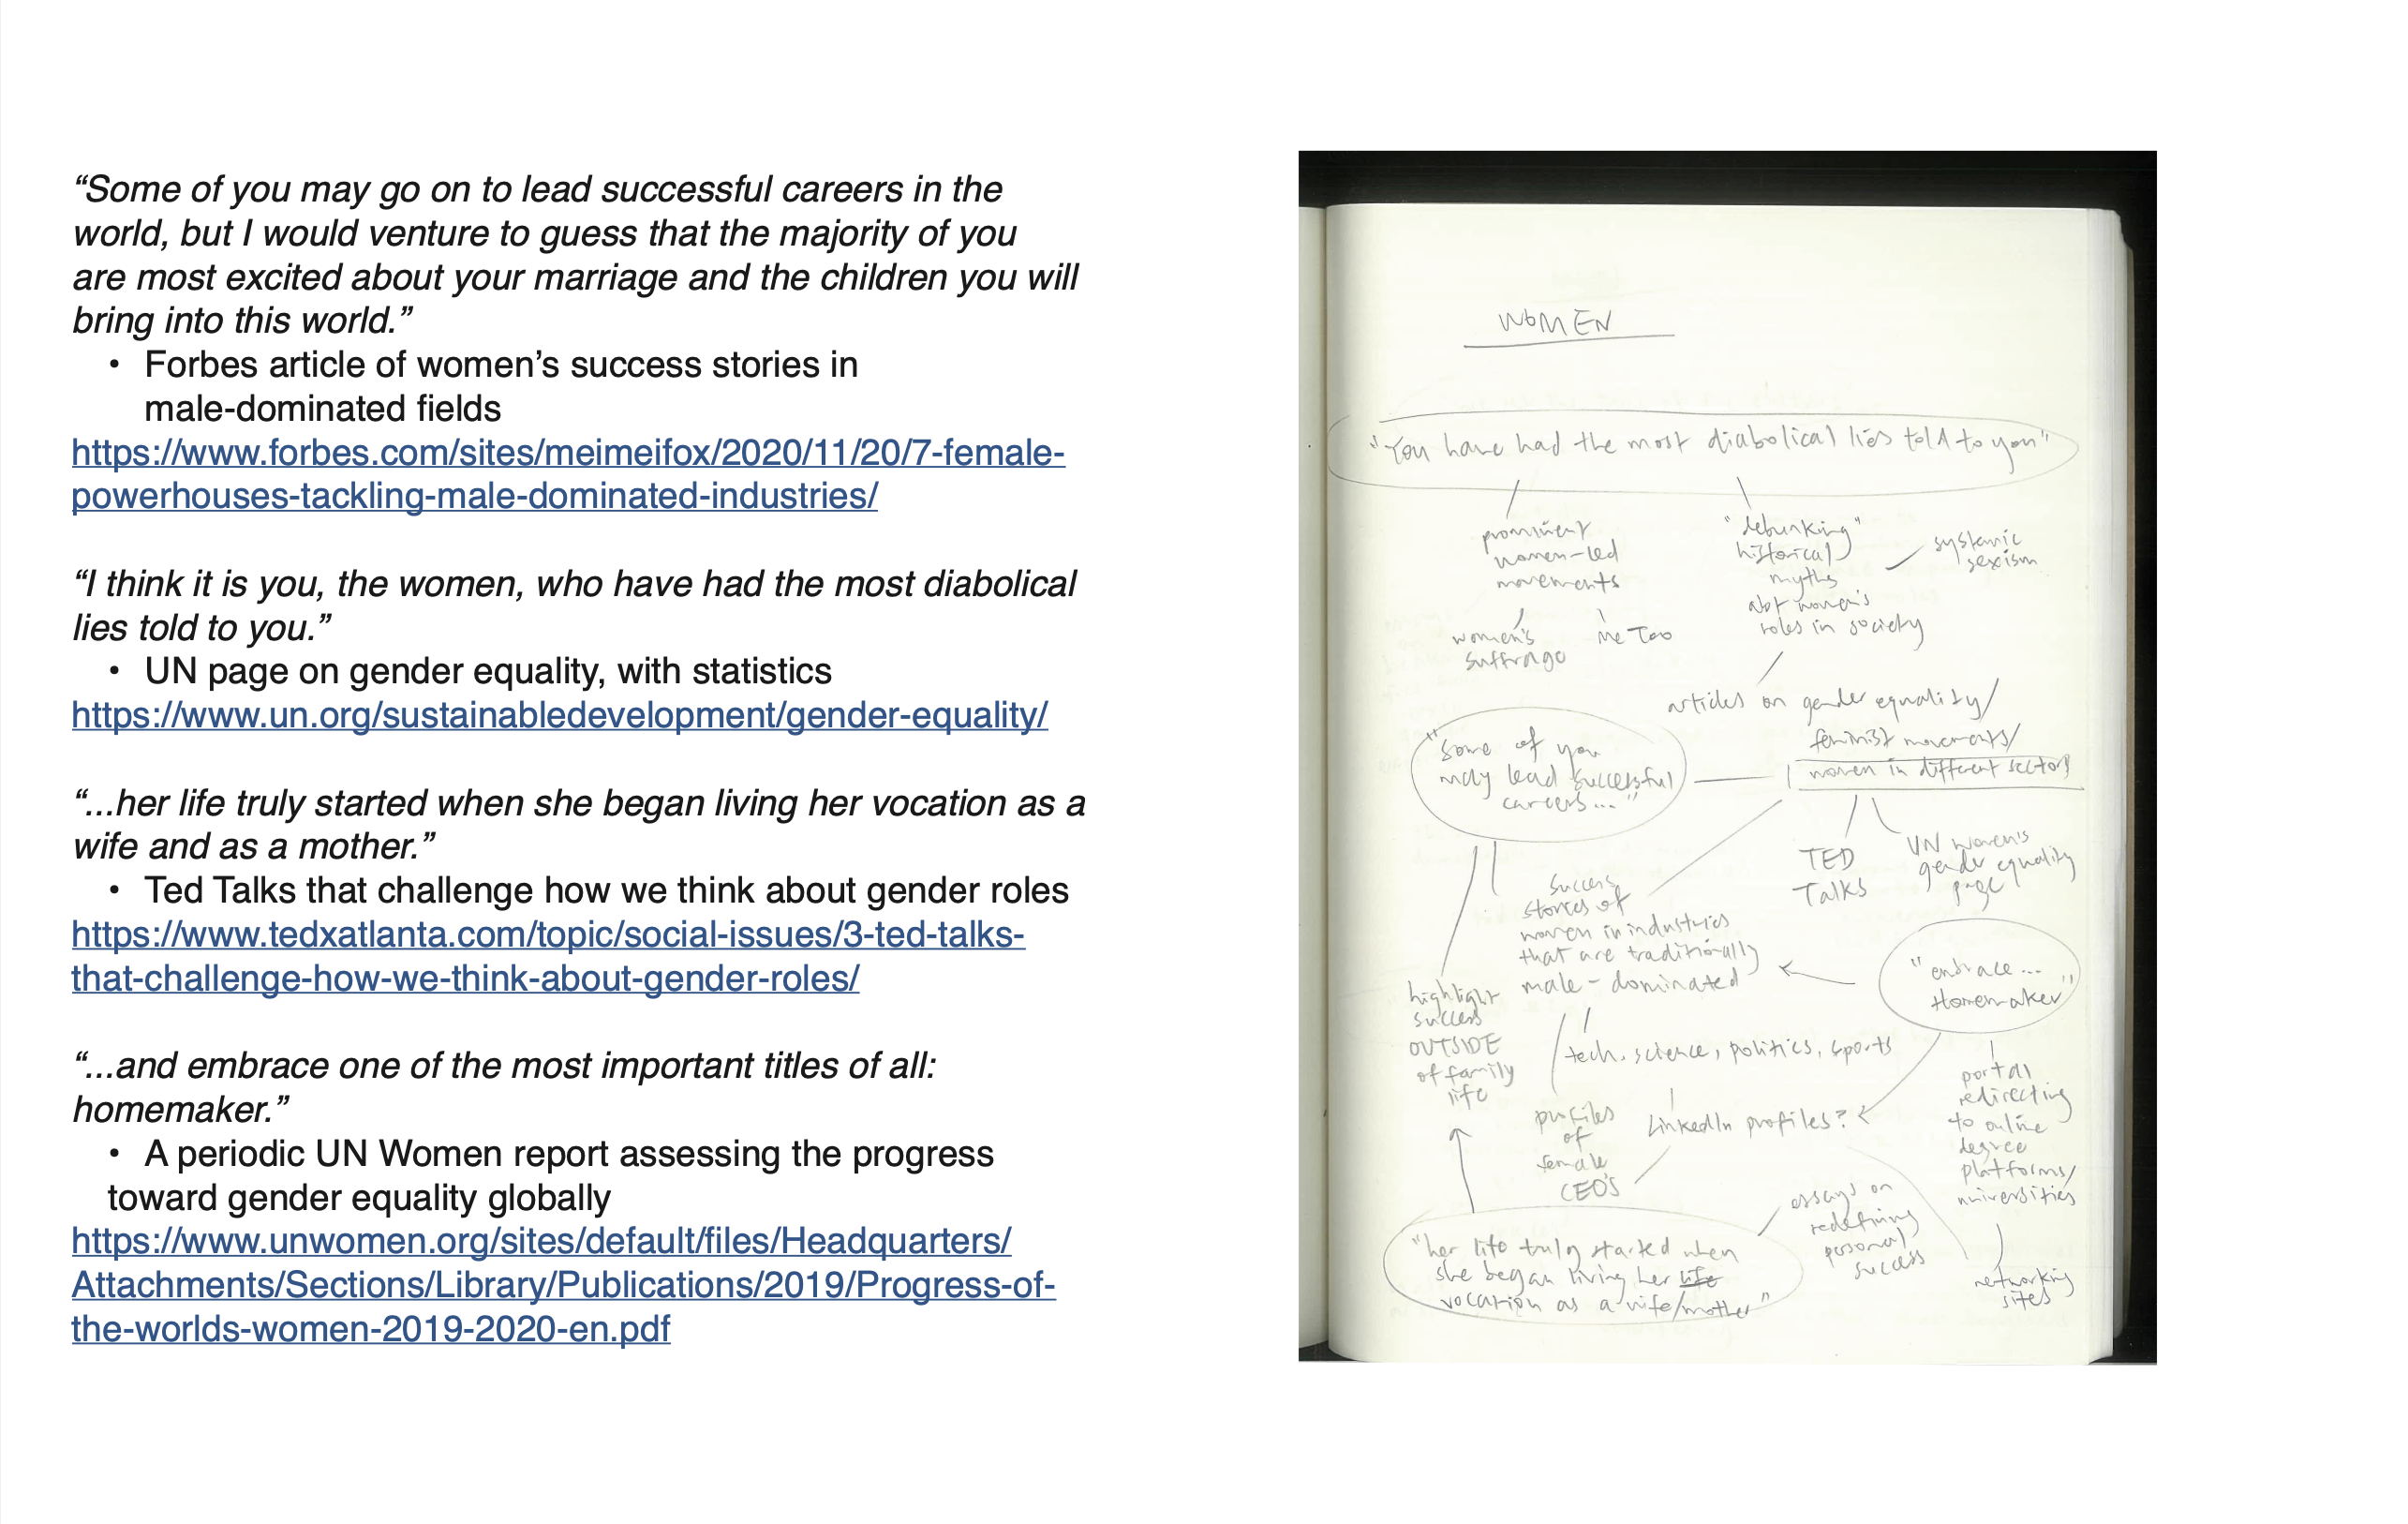 “Some of you may go on to lead successful careers in the
world, but I would venture to guess that the majority of you
are most excited about your marriage and the children you will
bring into this world.”
• Forbes article of women’s success stories in
male-dominated fields
https://www.forbes.com/sites/meimeifox/2020/11/20/7-female-
powerhouses-tackling-male-dominated-industries/
“I think it is you, the women, who have had the most diabolical
lies told to you.”
• UN page on gender equality, with statistics
https://www.un.org/sustainabledevelopment/gender-equality/
“...her life truly started when she began living her vocation as a
wife and as a mother.”
• Ted Talks that challenge how we think about gender roles
https://www.tedxatlanta.com/topic/social-issues/3-ted-talks-
that-challenge-how-we-think-about-gender-roles/
“...and embrace one of the most important titles of all:
homemaker.”
• A periodic UN Women report assessing the progress
toward gender equality globally
https://www.unwomen.org/sites/default/files/Headquarters/
Attachments/Sections/Library/Publications/2019/Progress-of-
the-worlds-women-2019-2020-en.pdf
WOMEN
"You have had the most diabolical lies told to you"
prominent
women-led
movements
women's
suffrage
Me Too
"debunking"
historical
myths
abt women's
roles in society
systemic
sexism
articles on gender equality/
feminist movements/
women in different sectors
"some of you
may lead successful
careers..."
TED
Talks
UN women's
gender equality
page
success
stories of
women in industries
that are traditionally
male-dominated
"embrace...
Homemaker"
highlight
success
OUTSIDE
of family
life
tech, science, politics, sports
profiles
of
female
CEO'S
LinkedIn profiles?
portal
redirecting
to online
degree
platforms/
universities
essays on
redefining
personal
success
networking
sites
"her life truly started when
she began living her life
vocation as a wife/mother"